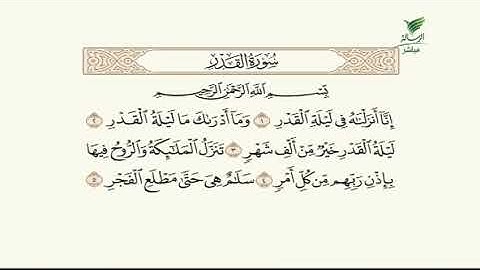 الرسالة
مباشر
سُورَةُ القَدْرِ
بِسْمِ اللَّهِ الرَّحْمَٰنِ الرَّحِيمِ
إِنَّا أَنزَلْنَاهُ فِي لَيْلَةِ الْقَدْرِ ١ وَمَا أَدْرَاكَ مَا لَيْلَةُ الْقَدْرِ ٢
لَيْلَةُ الْقَدْرِ خَيْرٌ مِّنْ أَلْفِ شَهْرٍ ٣ تَنَزَّلُ الْمَلَائِكَةُ وَالرُّوحُ فِيهَا
بِإِذْنِ رَبِّهِم مِّن كُلِّ أَمْرٍ ٤ سَلَامٌ هِيَ حَتَّىٰ مَطْلَعِ الْفَجْرِ ٥